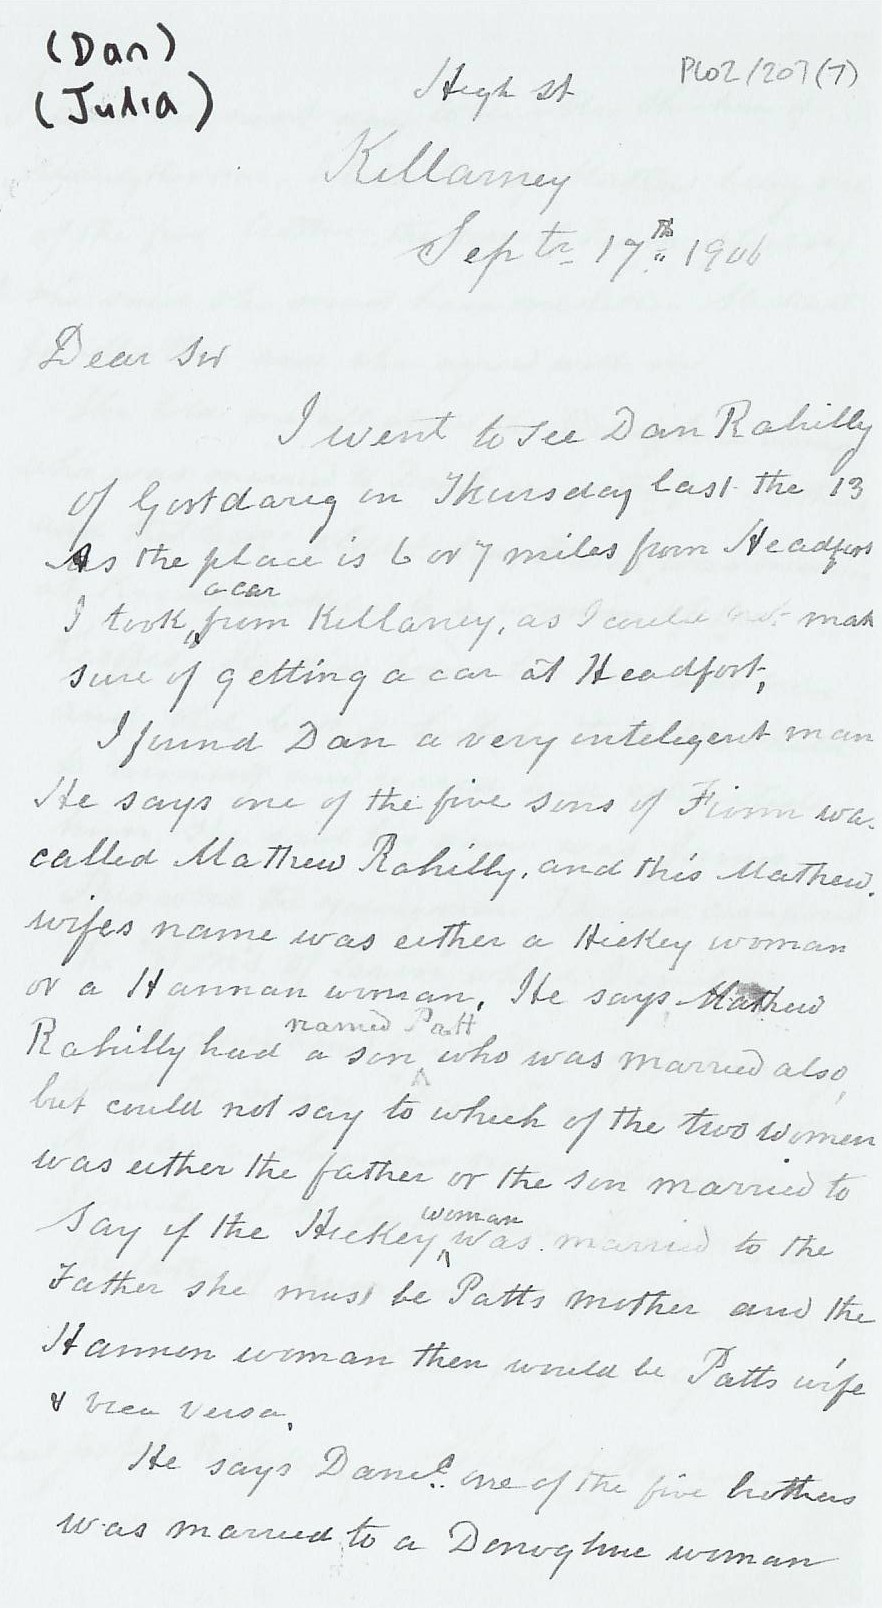 (Dan)
(Julia)
P102/207(7)
High St
Killarney
Septr 17th 1906
Dear Sir
I went to see Dan Rahilly
of Gortdareg on Thursday last the 13
As the place is 6 or 7 miles from Headfort
I took a car from Killarney, as I could not mak
sure of getting a car at Headfort,
I found Dan a very inteligent man
He says one of the five sons of Finn wa
called Mathew Rahilly, and this Mathew
wifes name was either a Hickey woman
or a Hannan woman, He says Mathew
Rahilly had a son named Patt who was married also,
but could not say to which of the two women
was either the father or the son married to
Say if the Hickey woman was married to the
Father she must be Patts mother and the
Hannon woman then would be Patts wife
& vica versa,
He says Danel. one of the five brothers
was married to a Donoghue woman